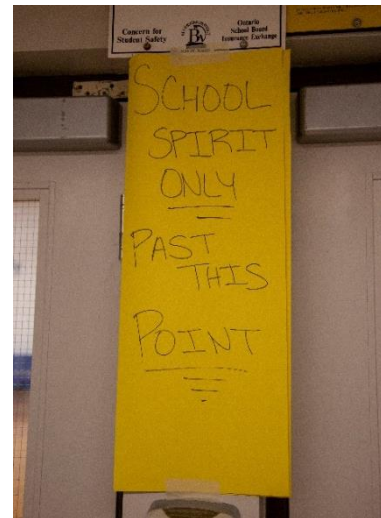 Concern for
Student Safety
Ontario
School Board
Insurance Exchange
SCHOOL
SPIRIT
ONLY
PAST
THIS
POINT